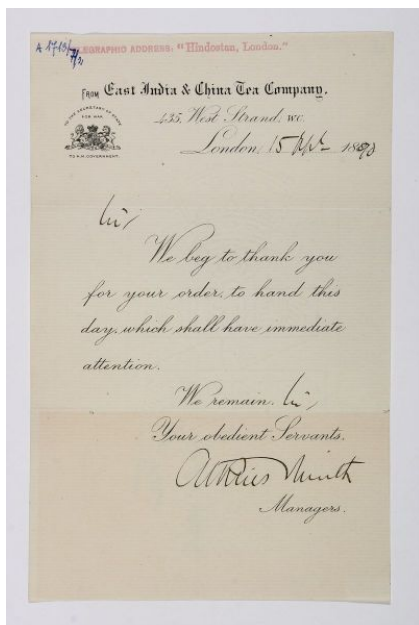 A 1713/
TELEGRAPHIC ADDRESS: "Hindostan, London."
FROM East India & China Tea Company,
TO THE SECRETARY OF STATE
FOR WAR
TO H.M. GOVERNMENT.
435, West Strand, WC.
London, 15 Apl 1890
Sir,
We beg to thank you
for your order, to hand this
day, which shall have immediate
attention.
We remain, Sir,
Your obedient Servants,
Managers.